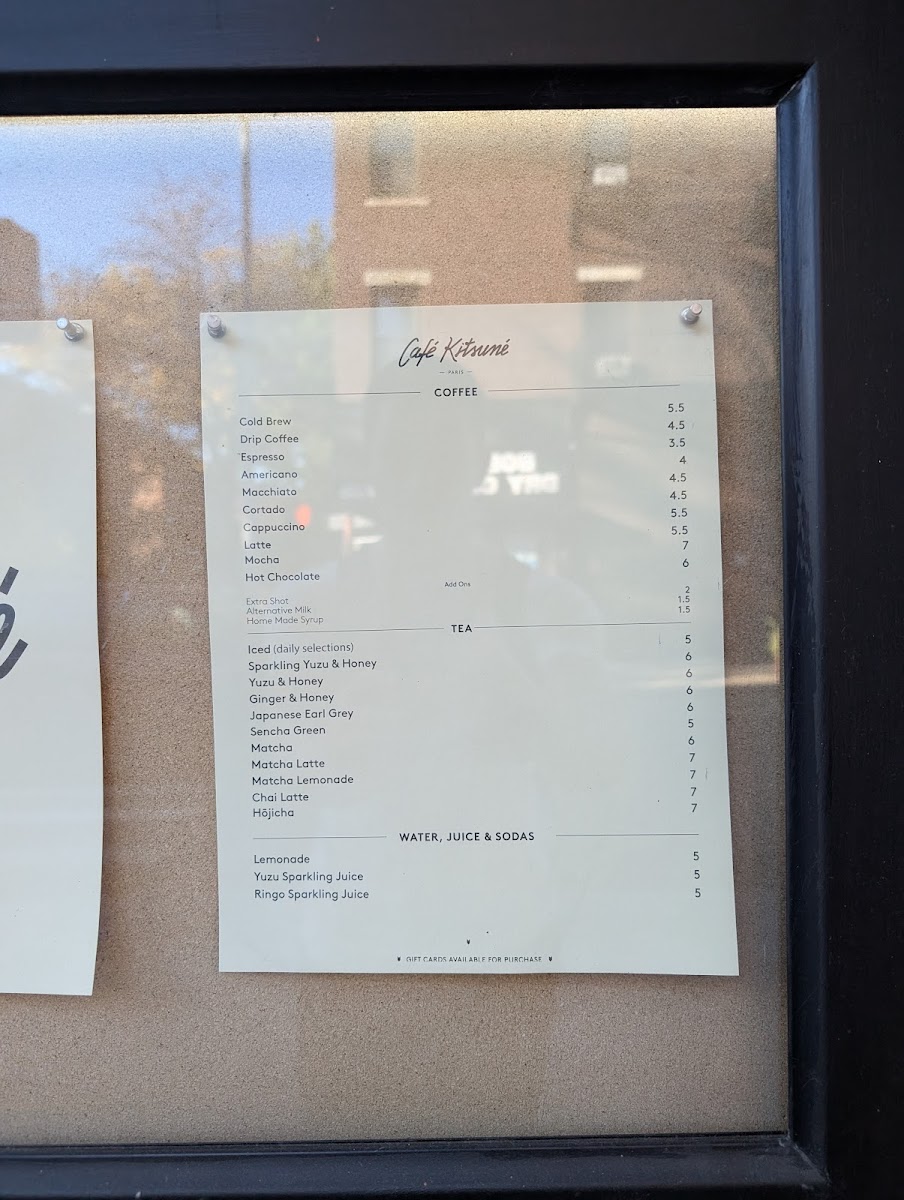 Café Kitsuné
— PARIS —
COFFEE
Cold Brew 5.5
Drip Coffee 4.5
Espresso 3.5
Americano 4
Macchiato 4.5
Cortado 4.5
Cappuccino 5.5
Latte 5.5
Mocha 7
Hot Chocolate 6
Add Ons
Extra Shot 2
Alternative Milk 1.5
Home Made Syrup 1.5
TEA
Iced (daily selections) 5
Sparkling Yuzu & Honey 6
Yuzu & Honey 6
Ginger & Honey 6
Japanese Earl Grey 6
Sencha Green 5
Matcha 6
Matcha Latte 7
Matcha Lemonade 7
Chai Latte 7
Hōjicha 7
WATER, JUICE & SODAS
Lemonade 5
Yuzu Sparkling Juice 5
Ringo Sparkling Juice 5
GIFT CARDS AVAILABLE FOR PURCHASE
é